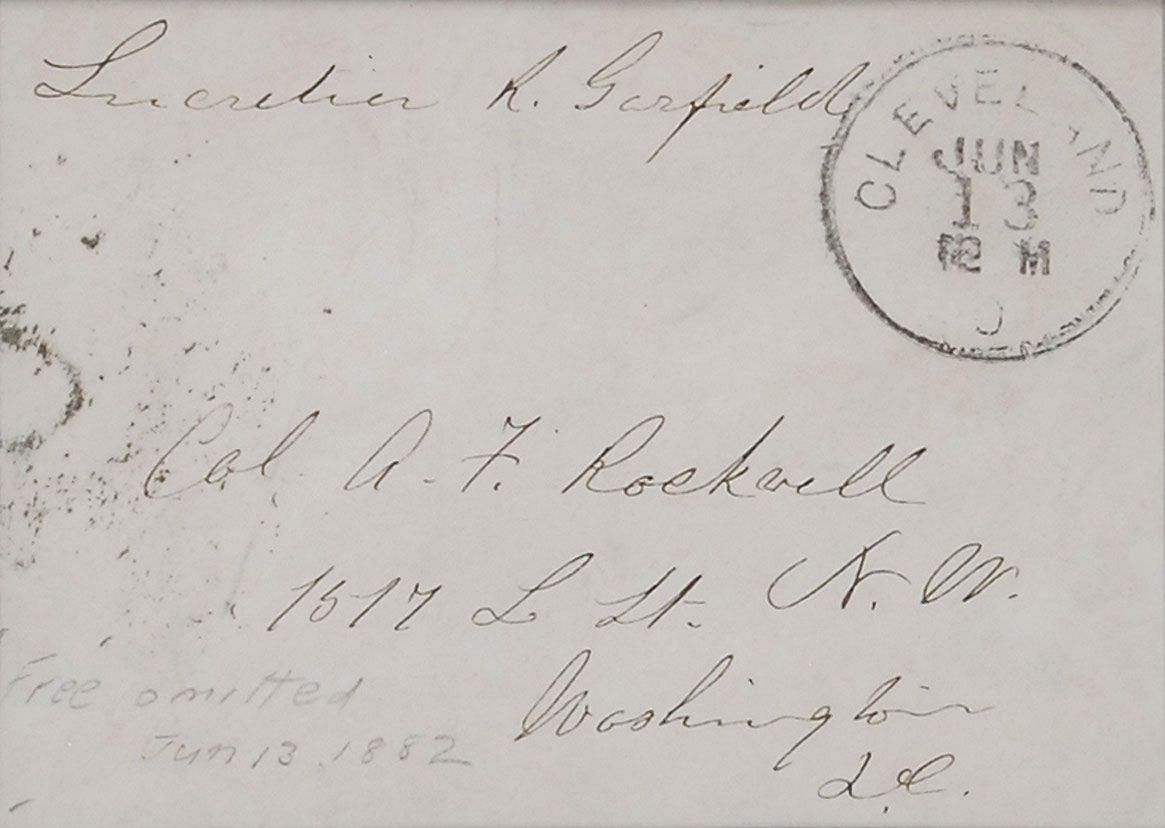 Lucretia R. Garfield
CLEVELAND
JUN
13
12 M
O
Col. A. F. Rockwell
1517 L St. N. W.
Washington
D.C.
Free omitted
Jun 13. 1882